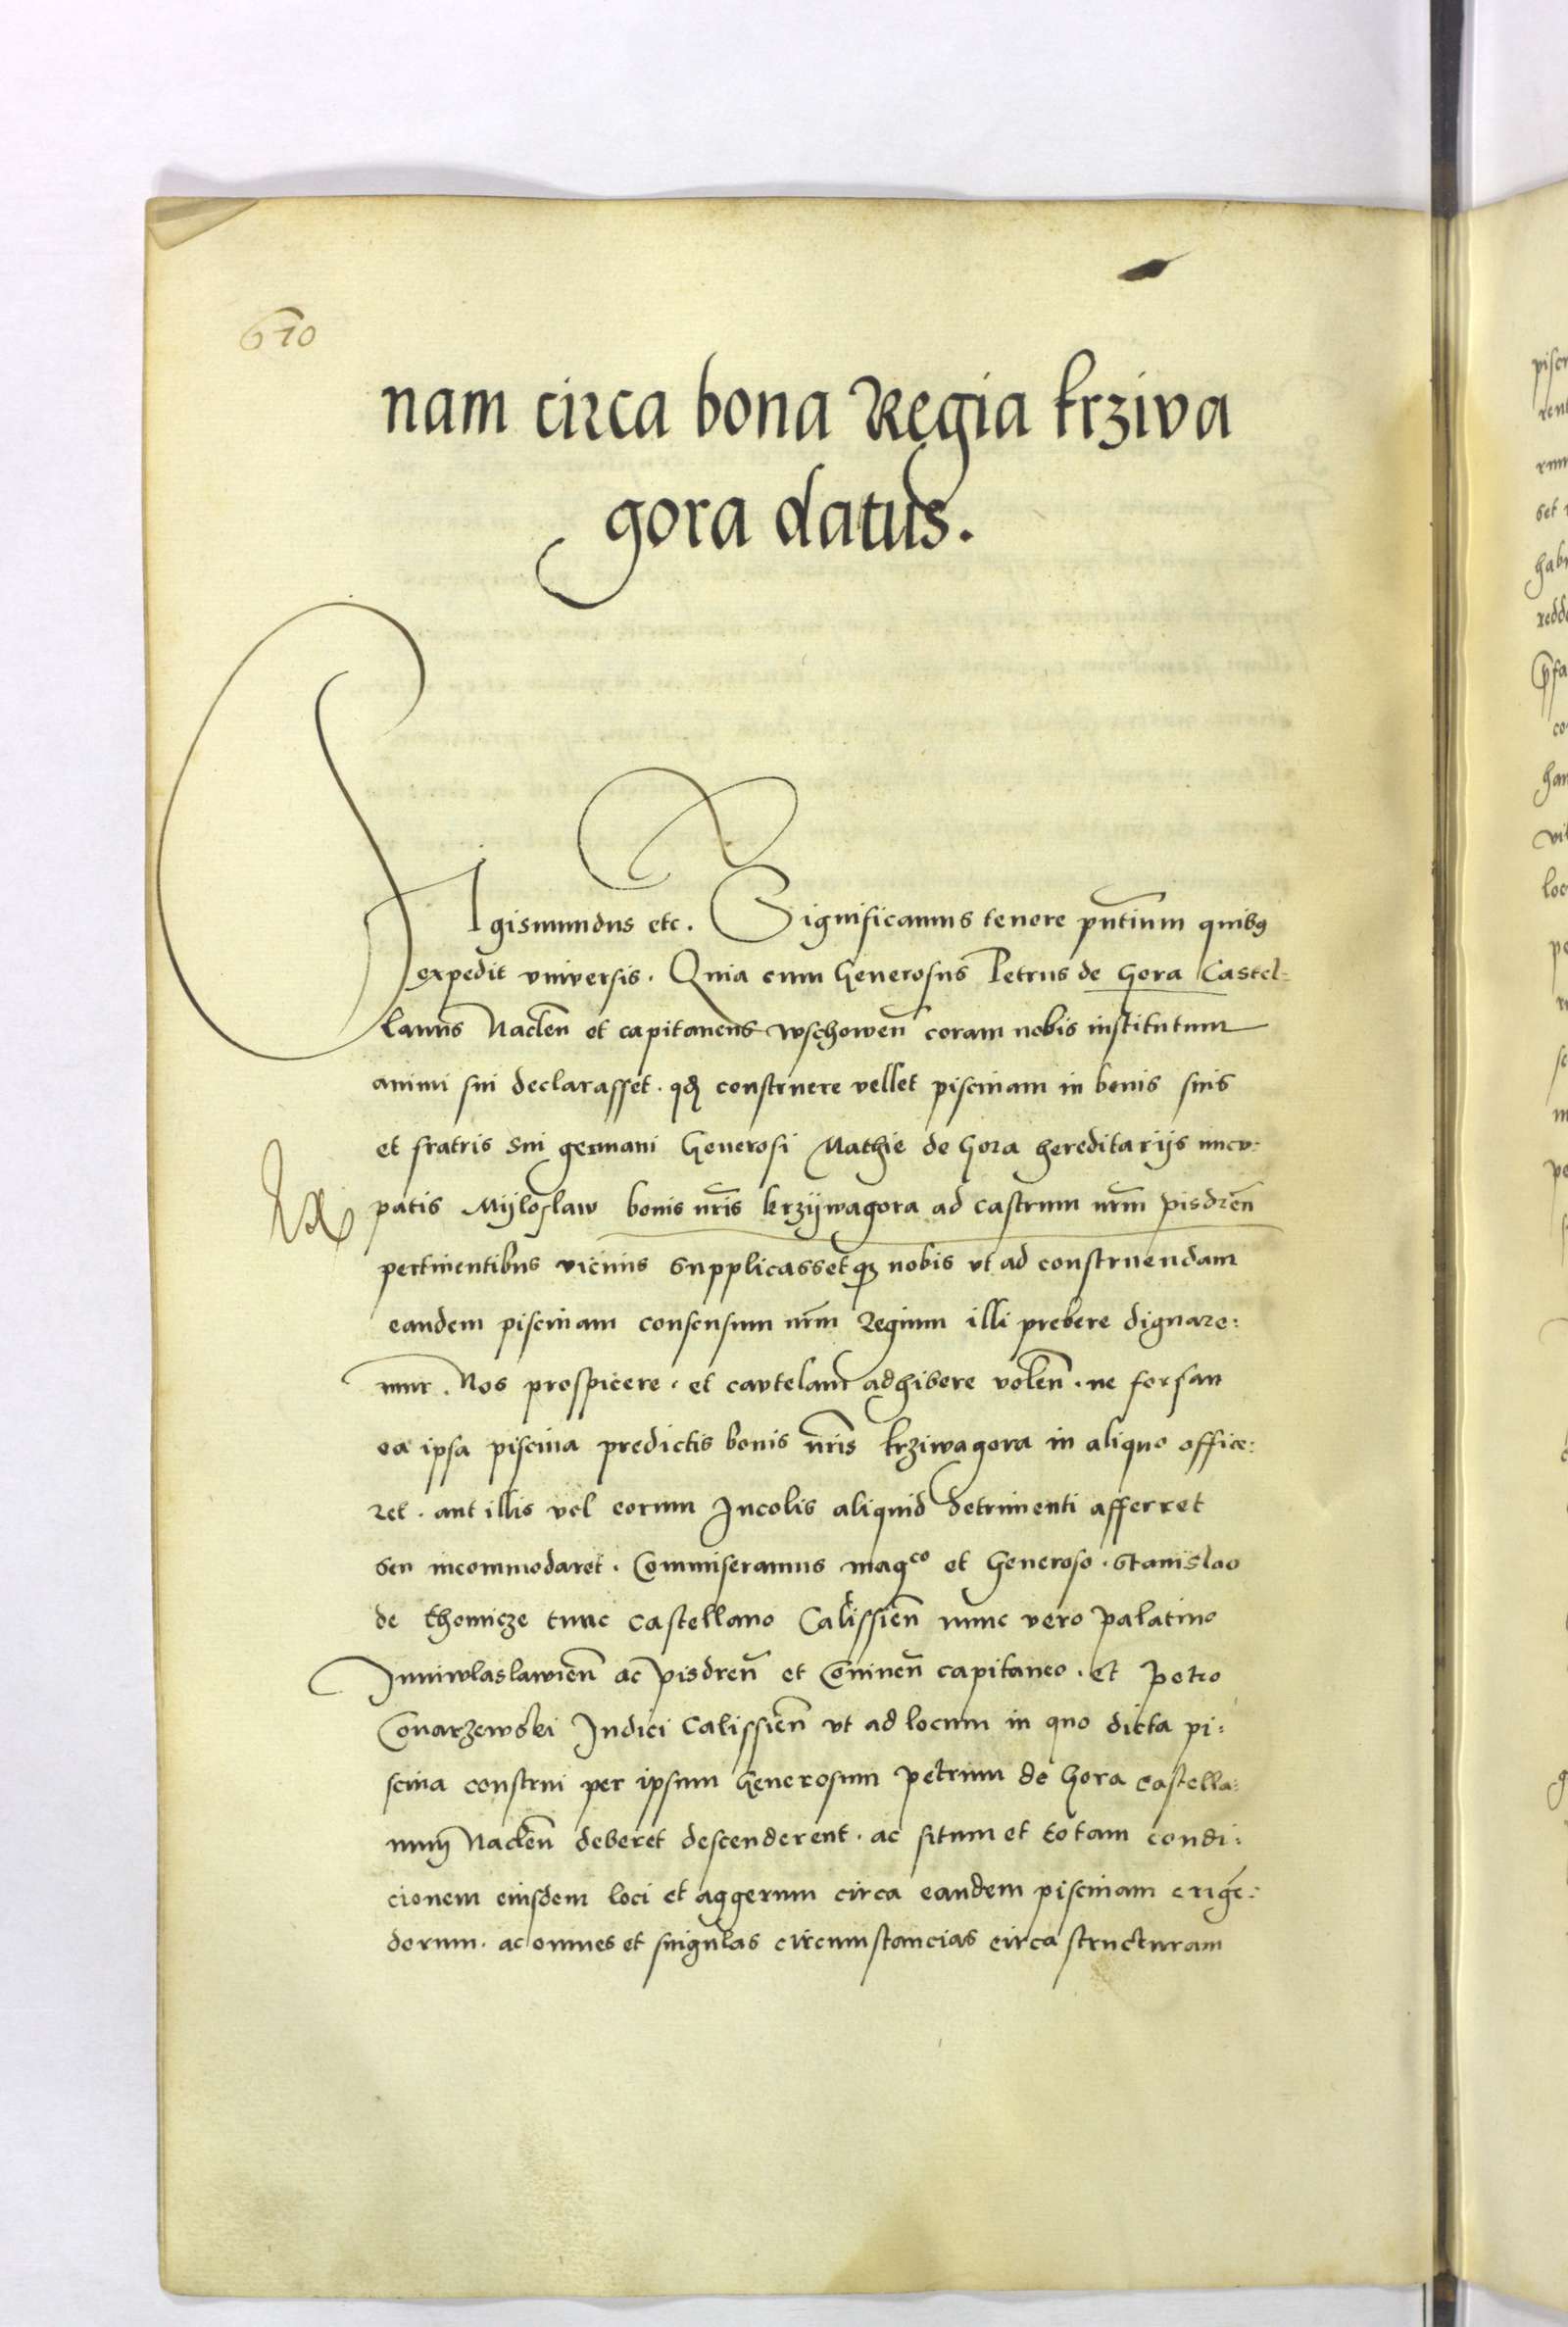 610
nam circa bona Regia krziva
gora datus.
Sigismundus etc. Significamus tenore pntium quibus
expedit vniversis. Quia cum Generosus Petrus de Gora Castel-
lanus Naclen et capitaneus wschowen coram nobis institutum
animi sui declarasset. qd construere vellet piscinam in bonis suis
et fratris sui germani Generosi Mathie de Gora hereditarijs nncu-
patis Mijloslaw bonis nris krzijwagora ad castrum nrm pisdren
pertinentibus vicinis supplicassetq nobis vt ad construendam
eandem piscinam consensum nrm Regium illi prebere dignare:
mur. Nos prospicere. et cautelam adhibere volen. ne forsan
ea ipsa piscina predictis bonis nris krziwagora in aliquo office:
ret. aut illis vel eorum Incolis aliquid detrimenti afferret
seu incommodaret. Commiseramus magco et Generoso. Stanislao
de thomicze tunc castellano Calissien nunc vero palatino
Iuniwlaslawien ac pisdren et Coninen capitaneo. et petro
Conarzewski Iudici Calissien vt ad locum in quo dicta pi:
scina construi per ipsum Generosum petrum de Gora castella:
num Naclen deberet descenderent. ac situm et totam condi:
cionem eiusdem loci et aggerum circa eandem piscinam erige:
dorum. ac omnes et singulas circumstancias circa structuram